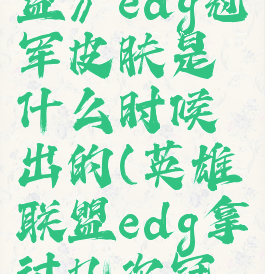 盟》edg冠
军皮肤是
什么时候
出的(英雄
联盟edg拿
过几次冠